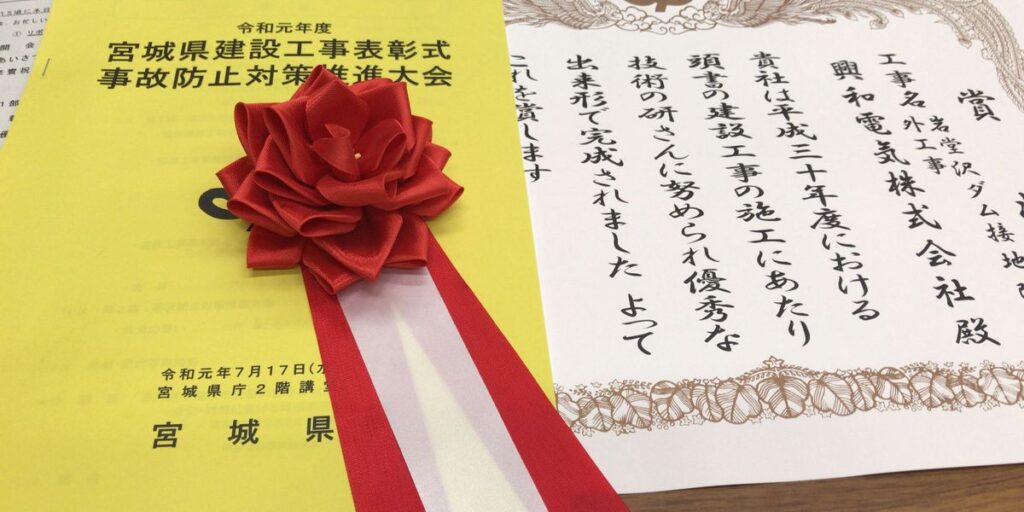 令和元年度
宮城県建設工事表彰式
事故防止対策推進大会
令和元年7月17日(水
宮城県庁2階講
宮城県
賞
工事名 岩堂沢ダム接地
外工事
興和電気株式会社殿
貴社は平成三十年度における
頭書の建設工事の施工にあたり
技術の研さんに努められ優秀な
出来形で完成されました よって
これを賞します
開会
あいさつ